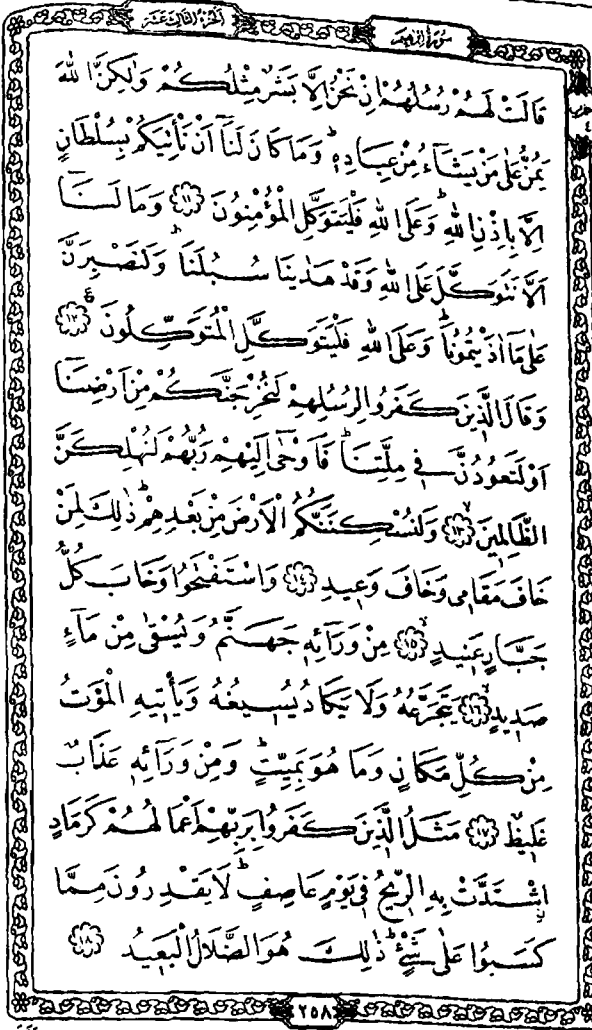 سورة ابراهيم
الجزء الثالث عشر
قَالَتْ لَهُمْ رُسُلُهُمْ اِنْ نَحْنُ اِلَّا بَشَرٌ مِثْلُكُمْ وَلٰكِنَّ اللّٰهَ
يَمُنُّ عَلٰى مَنْ يَشَٓاءُ مِنْ عِبَادِهٖۜ وَمَا كَانَ لَنَٓا اَنْ نَأْتِيَكُمْ بِسُلْطَانٍ
اِلَّا بِاِذْنِ اللّٰهِۜ وَعَلَى اللّٰهِ فَلْيَتَوَكَّلِ الْمُؤْمِنُونَ ﴿١١﴾ وَمَا لَنَٓا
اَلَّا نَتَوَكَّلَ عَلَى اللّٰهِ وَقَدْ هَدٰينَا سُبُلَنَاۜ وَلَنَصْبِرَنَّ
عَلٰى مَٓا اٰذَيْتُمُونَاۜ وَعَلَى اللّٰهِ فَلْيَتَوَكَّلِ الْمُتَوَكِّلُونَ۟ ﴿١٢﴾
وَقَالَ الَّذٖينَ كَفَرُوا لِرُسُلِهِمْ لَنُخْرِجَنَّكُمْ مِنْ اَرْضِنَٓا
اَوْ لَتَعُودُنَّ فٖي مِلَّتِنَاۜ فَاَوْحٰٓى اِلَيْهِمْ رَبُّهُمْ لَنُهْلِكَنَّ
الظَّالِمٖينَۙ ﴿١٣﴾ وَلَنُسْكِنَنَّكُمُ الْاَرْضَ مِنْ بَعْدِهِمْۜ ذٰلِكَ لِمَنْ
خَافَ مَقَامٖي وَخَافَ وَعٖيدِ ﴿١٤﴾ وَاسْتَفْتَحُوا وَخَابَ كُلُّ
جَبَّارٍ عَنٖيدٍۙ ﴿١٥﴾ مِنْ وَرَٓائِهٖ جَهَنَّمُ وَيُسْقٰى مِنْ مَٓاءٍ
صَدٖيدٍۙ ﴿١٦﴾ يَتَجَرَّعُهُ وَلَا يَكَادُ يُسٖيغُهُ وَيَأْتٖيهِ الْمَوْتُ
مِنْ كُلِّ مَكَانٍ وَمَا هُوَ بِمَيِّتٍۜ وَمِنْ وَرَٓائِهٖ عَذَابٌ
غَلٖيظٌ ﴿١٧﴾ مَثَلُ الَّذٖينَ كَفَرُوا بِرَبِّهِمْ اَعْمَالُهُمْ كَرَمَادٍ
اشْتَدَّتْ بِهِ الرّٖيحُ فٖي يَوْمٍ عَاصِفٍۜ لَا يَقْدِرُونَ مِمَّا
كَسَبُوا عَلٰى شَيْءٍۜ ذٰلِكَ هُوَ الضَّلَالُ الْبَعٖيدُ ﴿١٨﴾
٢٥٨